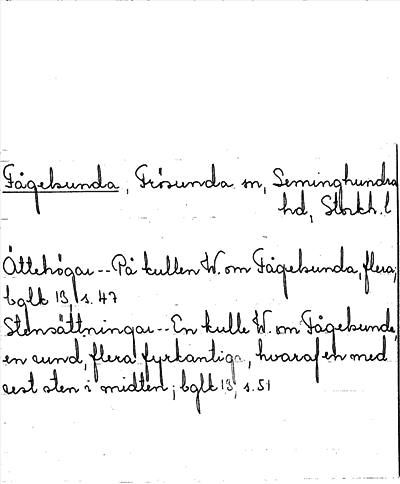 Fågelsunda, Frösunda sn, Seminghundra
hd, Stockh. l
Ättehögar -- På kullen W. om Fågelsunda, flera;
bglk 13, s. 47
Stensättningar -- En kulle W. om Fågelsunda,
en rund, flera fyrkantiga, hvaraf en med
rest sten i midten; bglk 13, s. 51